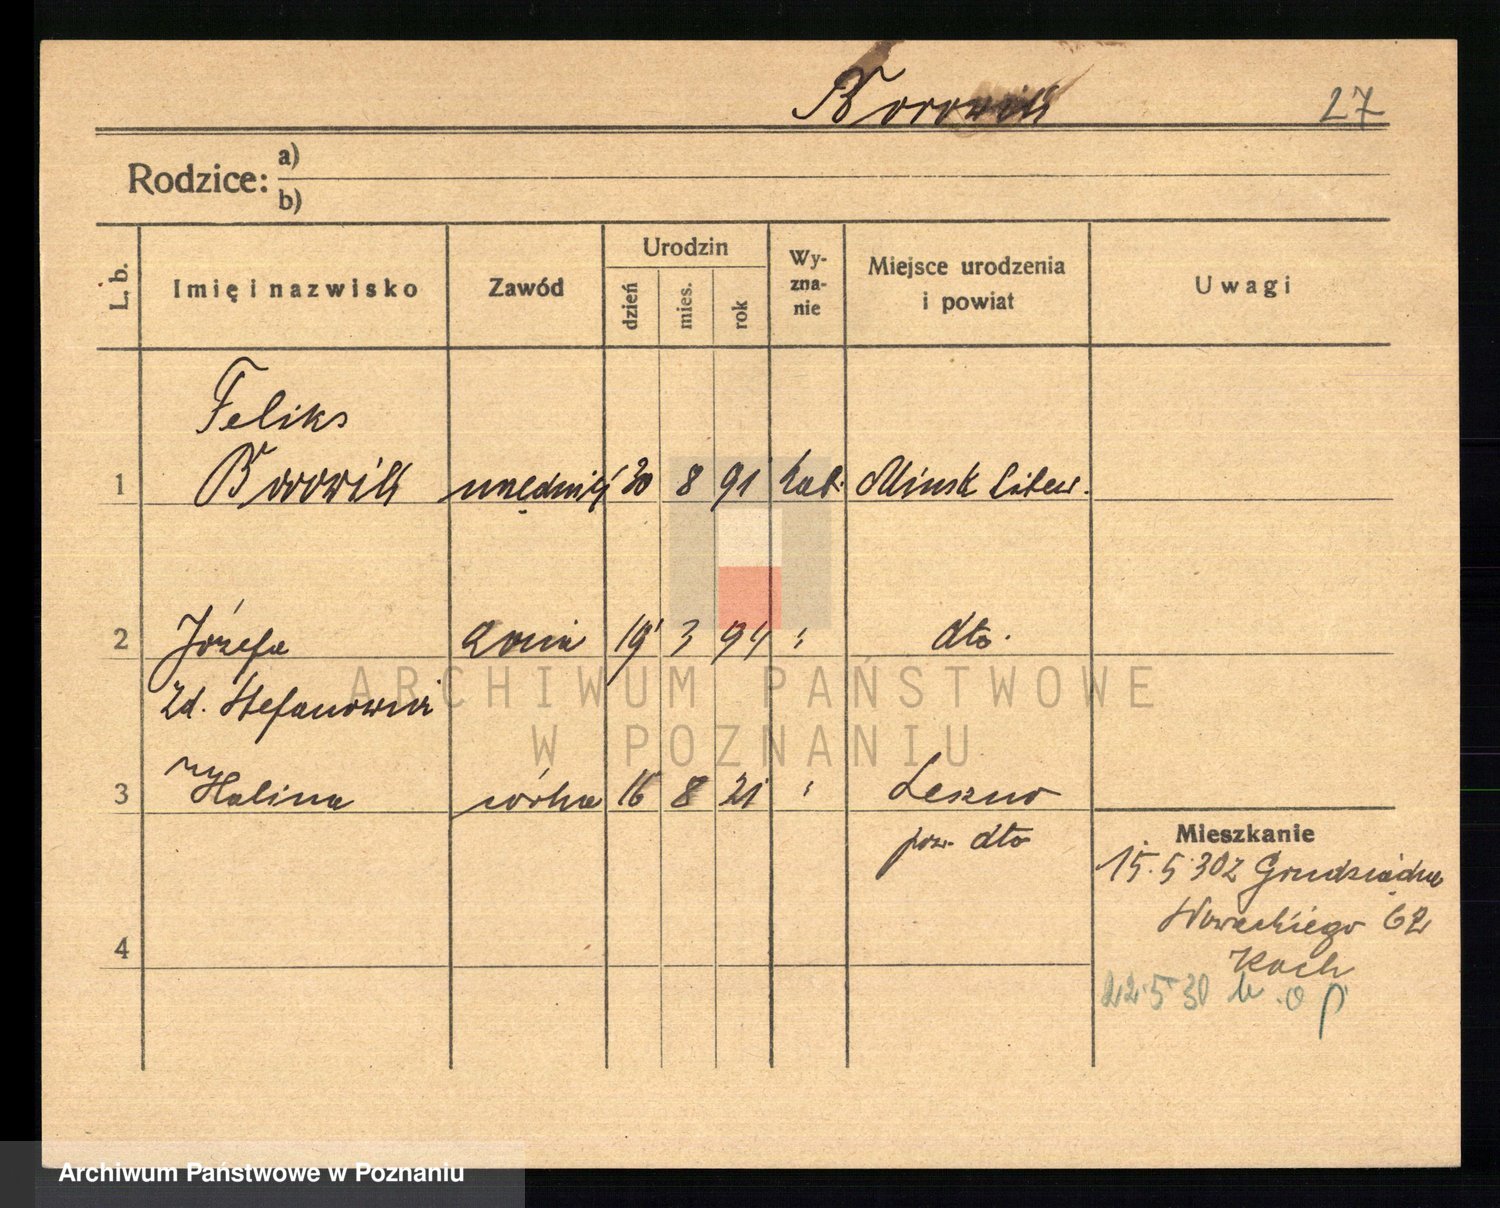 Borowik 27
Rodzice: a)
b)
L. b. Imię i nazwisko Zawód Urodzin dzień mies. rok Wy-zna-nie Miejsce urodzenia i powiat Uwagi
Feliks
1 Borowik urzędnik 30 8 91 kat. Mińsk Litew.
2 Józefa żona 19 3 94 " dto.
zd. Stefanowicz
3 Halina córka 16 8 21 " Leszno
pow. dto
Mieszkanie
15.5.30 z Grudziądza
4
Koch
22.5.30
ARCHIWUM PAŃSTWOWE
W POZNANIU
Archiwum Państwowe w Poznaniu